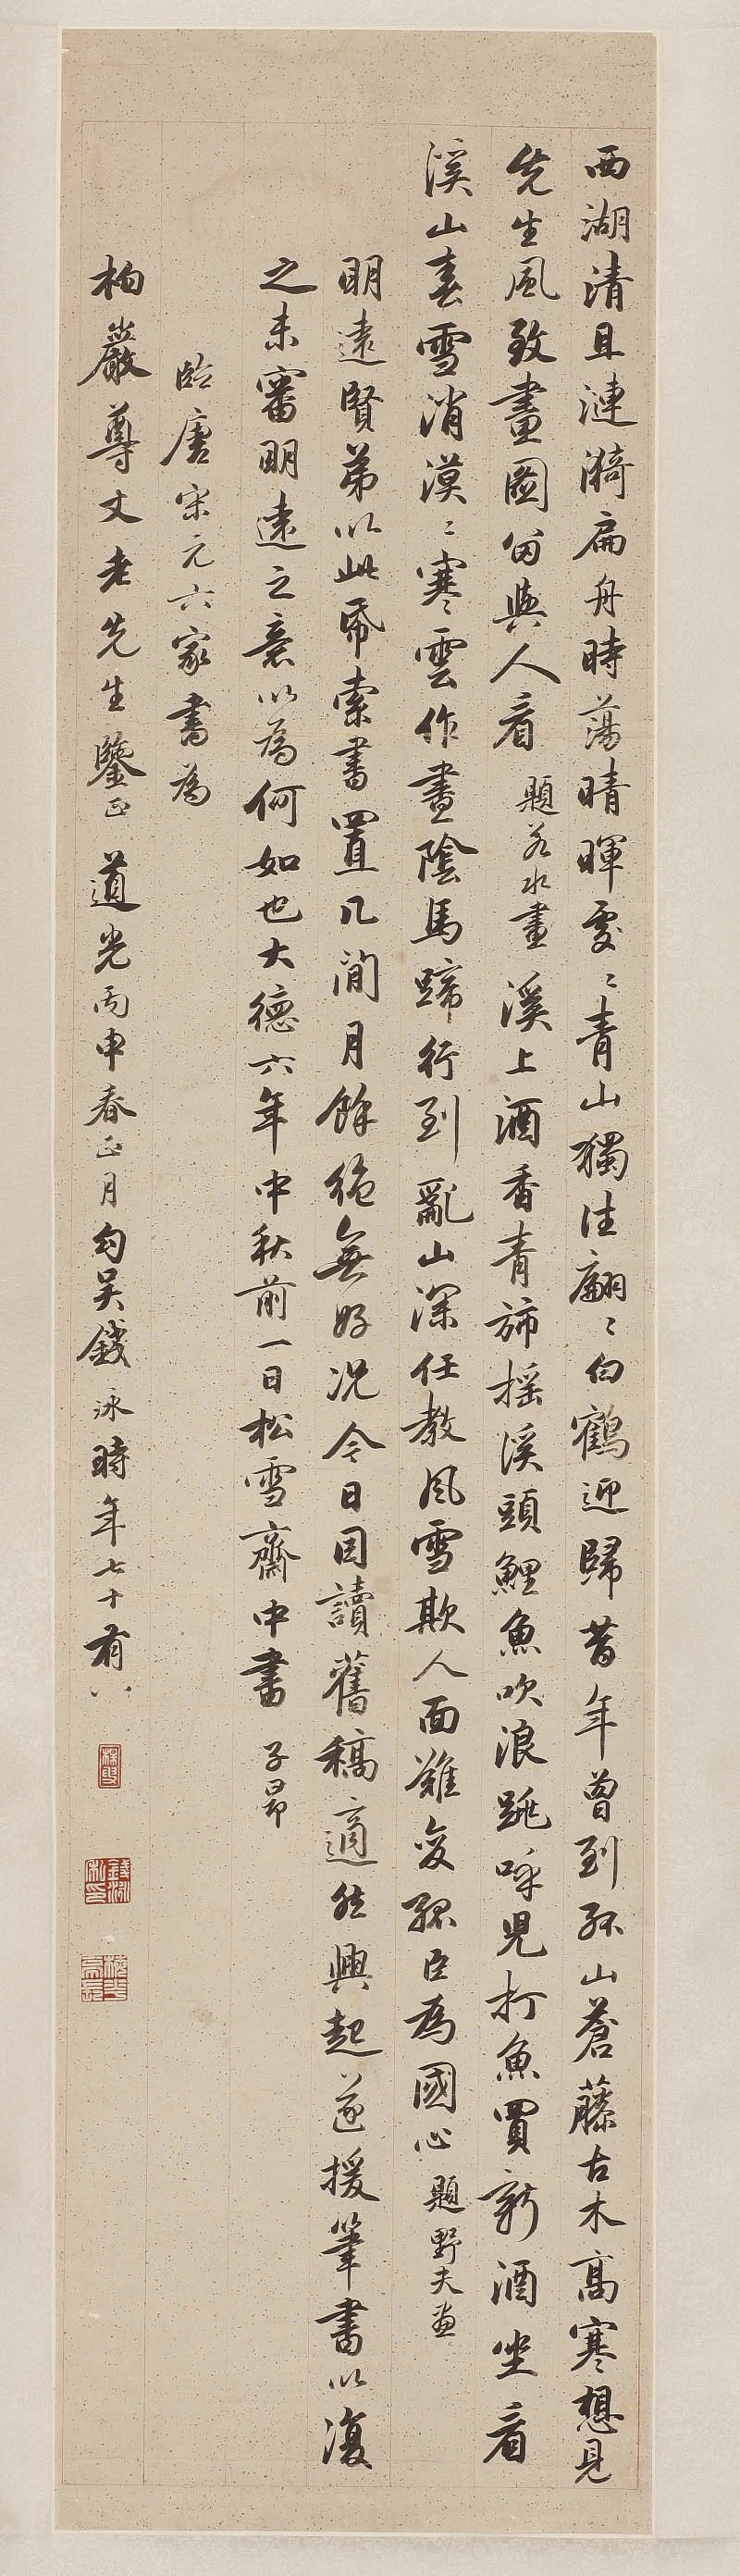 西湖清且漣漪扁舟時蕩晴暉處〻青山獨往翩〻白鶴迎歸昔年曾到孤山蒼藤古木高寒想見
先生風致畫圖留與人看 題若水畫 溪上酒香青斾搖溪頭鯉魚吹浪跳呼兒打魚買新酒坐看
溪山春雪消漠〻寒雲作晝陰馬蹄行到亂山深任教風雪欺人面難變孤臣為國心 題野夫畫
明遠賢弟以此帋索書置几閒月餘絕無好況今日因讀舊稿適然興起遂援筆書以復
之未審明遠之意以為何如也大德六年中秋前一日松雪齋中書 子昂
臨唐宋元六家書為
柏巖尊丈老先生鑒正 道光丙申春正月勾吳錢泳時年七十有八